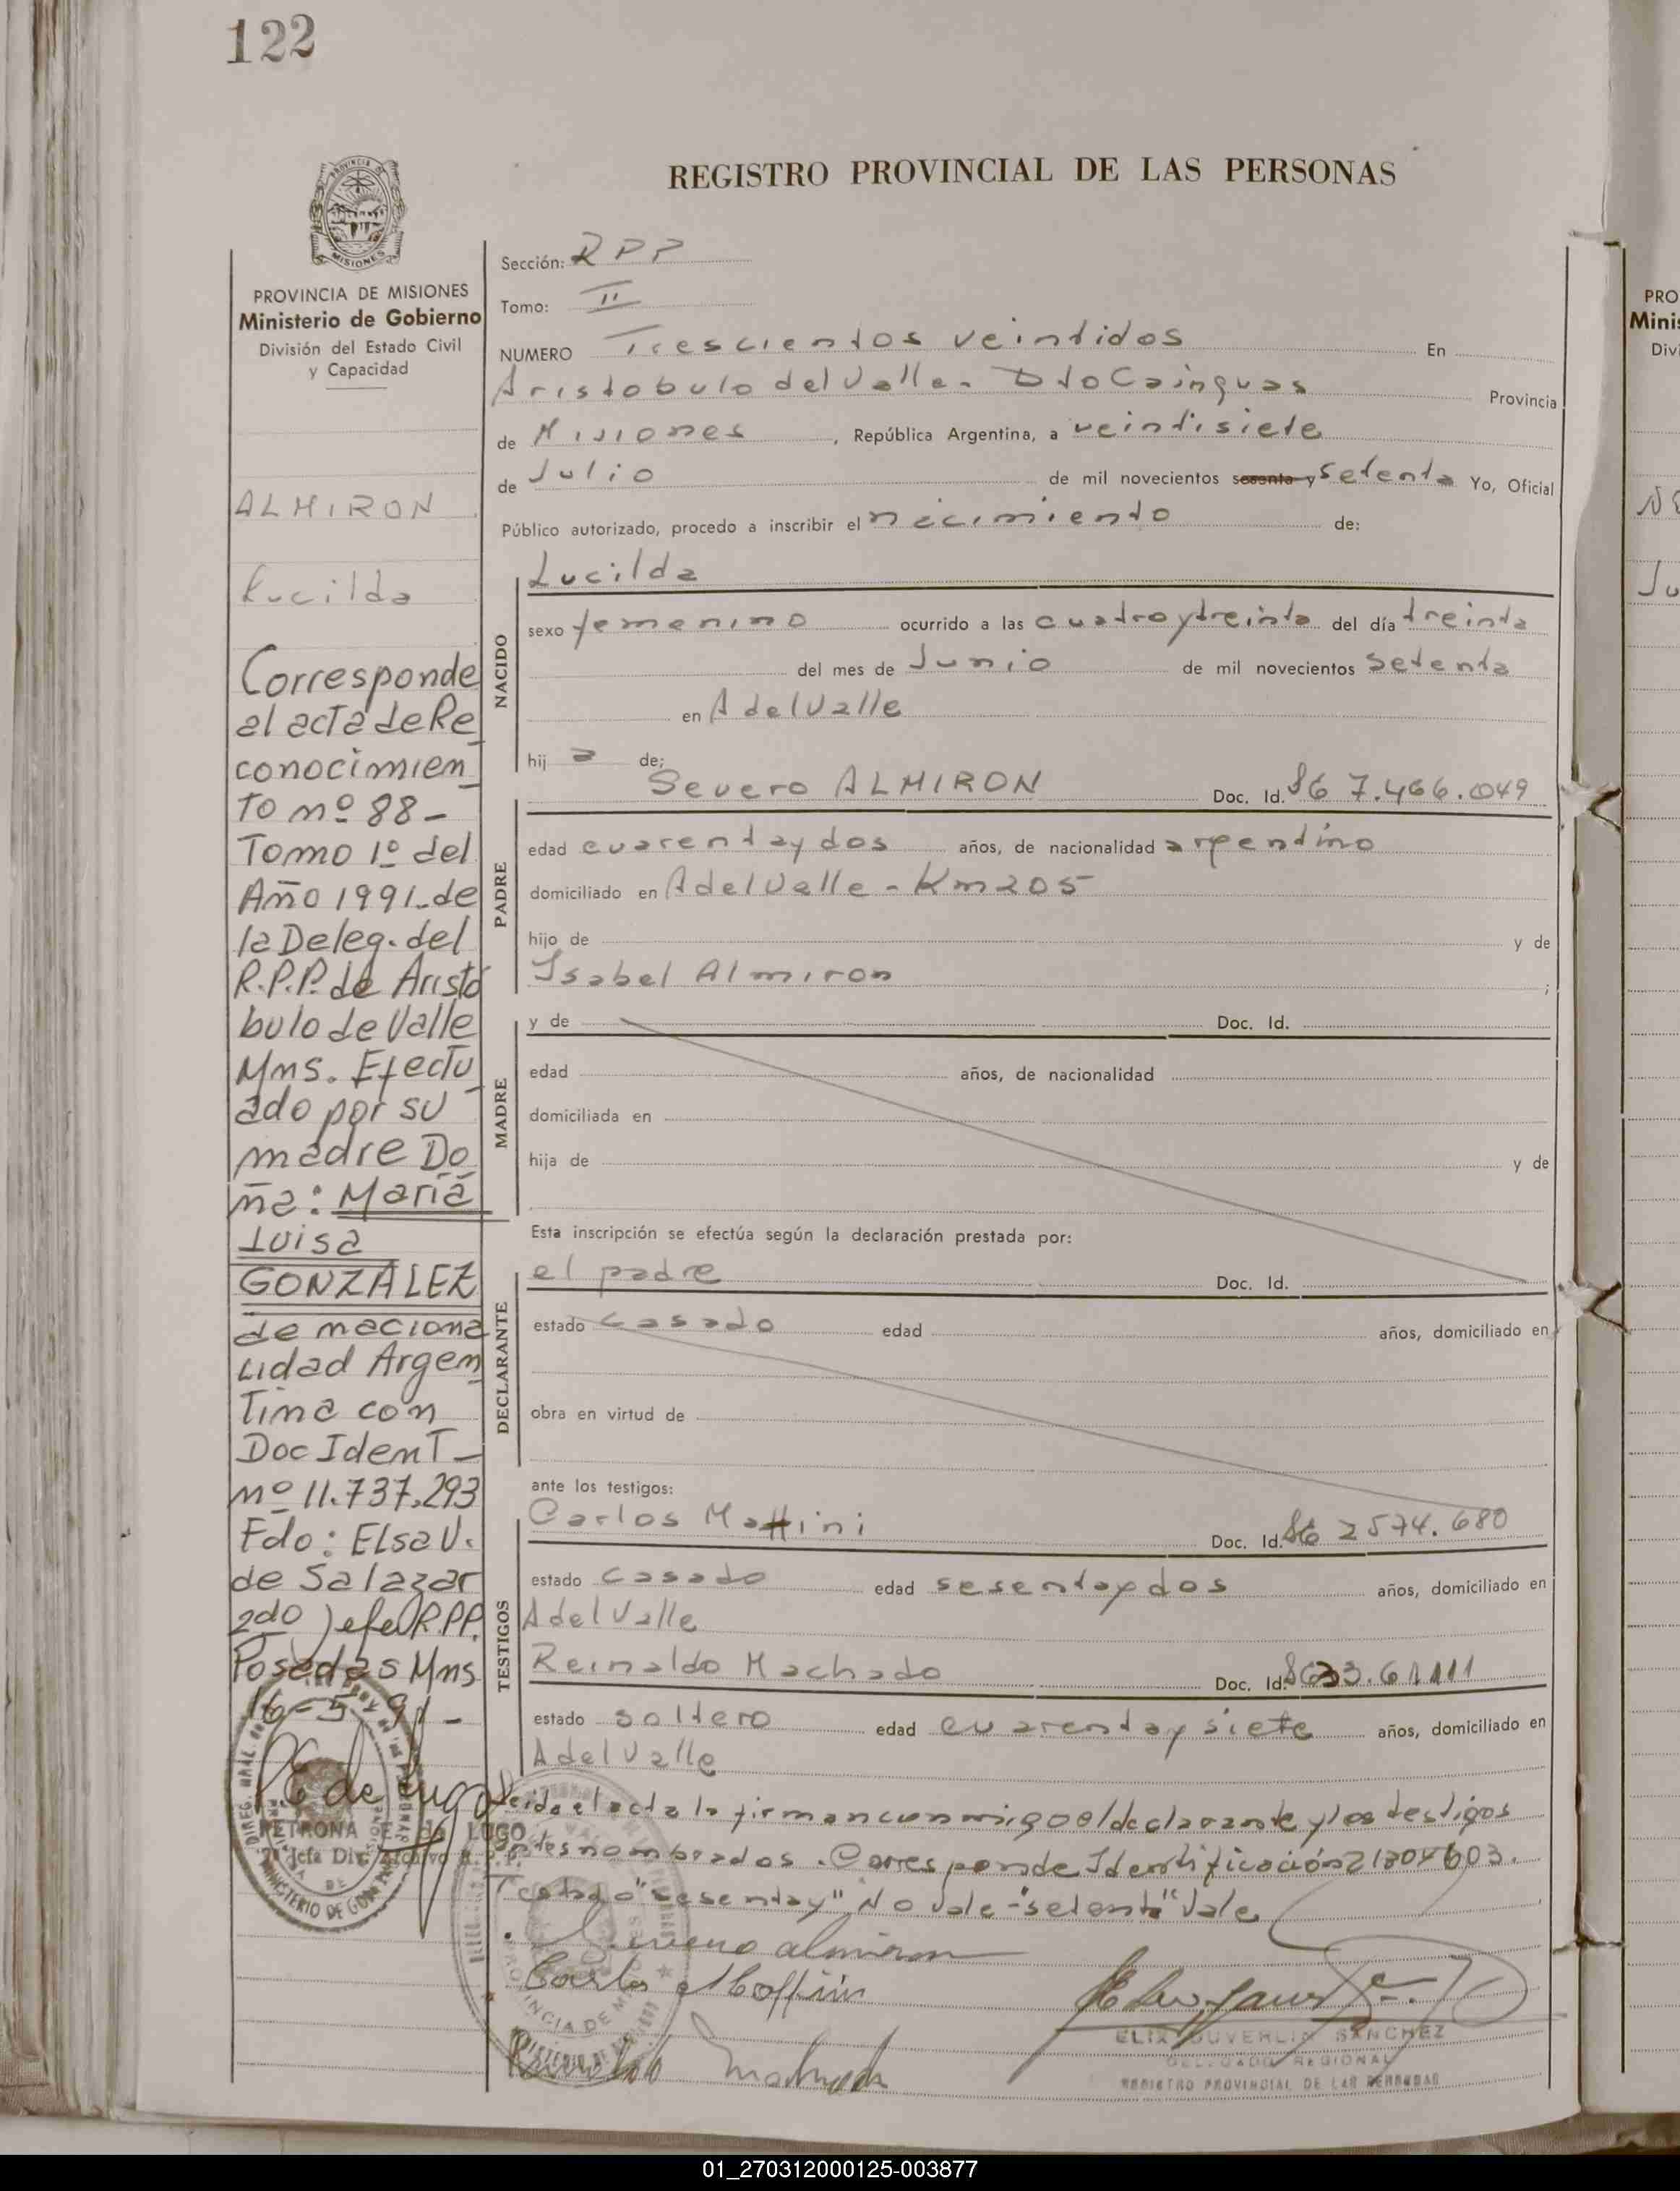 122
REGISTRO PROVINCIAL DE LAS PERSONAS
PROVINCIA DE MISIONES
Ministerio de Gobierno
División del Estado Civil
y Capacidad
ALMIRON
Lucilda
Corresponde
al acta de Re
conocimien
to nº 88-
Tomo 1º del
Año 1991-de
la Deleg. del
R.P.P. de Aristó
bulo de Valle
Mns. Efectu
ado por su
madre Do
ña: Maria
Luisa
GONZALEZ
de naciona
lidad Argen
tina con
Doc Ident-
nº 11.737.293
Fdo: Elsa V.
de Salazar
2do Jefe R.P.P.
Posadas Mns
16-5-91-
PETRONA E. de LUGO
Sección: RPP
Tomo: II
NUMERO Trescientos veintidos En
Aristobulo del Valle - Dto Cainguas Provincia
de Misiones, República Argentina, a veintisiete
de Julio de mil novecientos sesenta y setenta Yo, Oficial
Público autorizado, procedo a inscribir el nacimiento de:
NACIDO
Lucilda
sexo femenino ocurrido a las cuatro y treinta del día treinta
del mes de Junio de mil novecientos setenta
en A del Valle
hij a de:
PADRE
Severo ALMIRON Doc. Id. 7.466.049
edad cuarenta y dos años, de nacionalidad argentino
domiciliado en A del Valle - Km 205
hijo de y de
Isabel Almiron ;
MADRE
y de Doc. Id.
edad años, de nacionalidad
domiciliada en
hija de y de
Esta inscripción se efectúa según la declaración prestada por:
DECLARANTE
el padre Doc. Id.
estado casado edad años, domiciliado en
obra en virtud de
ante los testigos:
TESTIGOS
Carlos Doc. Id. 2574.680
estado casado edad sesenta y dos años, domiciliado en
A del Valle
Reinaldo Machado Doc. Id.
estado soltero edad cuarenta y siete años, domiciliado en
A del Valle
Leida el acta la firman conmigo el declarante y los testigos
antes nombrados. Corresponde Identificación
Testado "sesenta y" No vale - "setenta" Vale
Severo almiron
Carlos
Machado
ELIX DUVERLIN SANCHEZ
DELEGADO REGIONAL
REGISTRO PROVINCIAL DE LAS PERSONAS
PRO
Minis
Divi
Ju
01_270312000125-003877